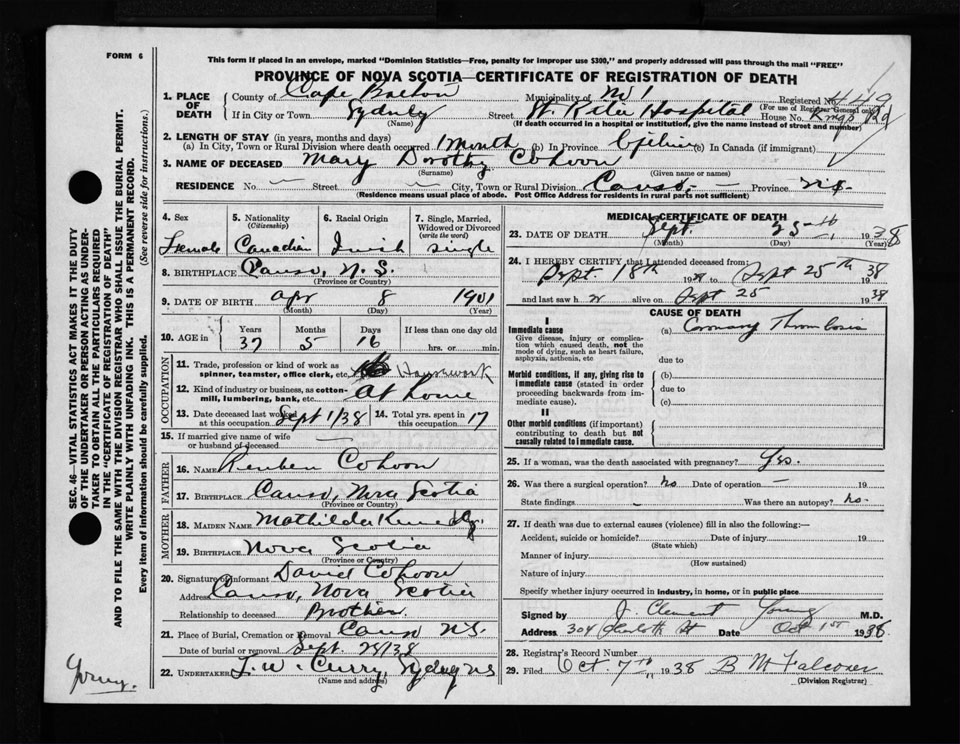 FORM 6
This form if placed in an envelope, marked "Dominion Statistics—Free, penalty for improper use $300," and properly addressed will pass through the mail "FREE"
PROVINCE OF NOVA SCOTIA—CERTIFICATE OF REGISTRATION OF DEATH
1. PLACE OF DEATH County of Cape Breton Municipality of No 1 Registered No. 449
(For use of Registrar General only)
If in City or Town Sydney Street Hospital House No. Kings Rd
(Name) (If death occurred in a hospital or institution, give the name instead of street and number)
2. LENGTH OF STAY (in years, months and days)
(a) In City, Town or Rural Division where death occurred 1 month (b) In Province (c) In Canada (if immigrant)
3. NAME OF DECEASED Mary Dorothy Cohoon
(Surname) (Given name or names)
RESIDENCE No. — Street — City, Town or Rural Division Canso, — Province N.S.
(Residence means usual place of abode. Post Office Address for residents in rural parts not sufficient)
4. Sex Female
5. Nationality (Citizenship) Canadian
6. Racial Origin
7. Single, Married, Widowed or Divorced (write the word) Single
8. BIRTHPLACE Canso, N.S.
(Province or Country)
9. DATE OF BIRTH Apr 8 1901
(Month) (Day) (Year)
10. AGE in Years 37 Months 5 Days 16 If less than one day old hrs. or min.
OCCUPATION
11. Trade, profession or kind of work as spinner, teamster, office clerk, etc. Housework
12. Kind of industry or business, as cotton-mill, lumbering, bank, etc. At home
13. Date deceased last worked at this occupation Sept 1/38 14. Total yrs. spent in this occupation 17
15. If married give name of wife or husband of deceased —
FATHER
16. NAME Reuben Cohoon
17. BIRTHPLACE Canso, Nova Scotia
(Province or Country)
MOTHER
18. MAIDEN NAME Mathilda Kennedy
19. BIRTHPLACE Nova Scotia
(Province or Country)
20. Signature of informant David Cohoon
Address Canso, Nova Scotia
Relationship to deceased Brother
21. Place of Burial, Cremation or Removal Canso N.S.
Date of burial or removal Sept. 28/38
22. UNDERTAKER T. W. Curry, Sydney NS
(Name and address)
MEDICAL CERTIFICATE OF DEATH
23. DATE OF DEATH Sept. 25th, 1938
(Month) (Day) (Year)
24. I HEREBY CERTIFY that I attended deceased from:
Sept. 18th 1938 to Sept 25th 1938
and last saw her alive on Sept 25 1938
CAUSE OF DEATH
I
Immediate cause (a) Coronary Thrombosis
Give disease, injury or complication which caused death, not the mode of dying, such as heart failure, asphyxia, asthenia, etc
due to
Morbid conditions, if any, giving rise to immediate cause (stated in order proceeding backwards from immediate cause).
(b)
due to
(c)
II
Other morbid conditions (if important) contributing to death but not causally related to immediate cause.
25. If a woman, was the death associated with pregnancy? Yes.
26. Was there a surgical operation? no Date of operation —
State findings — Was there an autopsy? no.
27. If death was due to external causes (violence) fill in also the following:—
Accident, suicide or homicide? Date of injury 19
(State which)
Manner of injury
(How sustained)
Nature of injury
Specify whether injury occurred in industry, in home, or in public place
Signed by J. Clement Young M.D.
Address 304 Charlotte St Date Oct 1st 1938
28. Registrar's Record Number
29. Filed Oct. 7th, 1938 B M Falconer
(Division Registrar)
SEC. 46—VITAL STATISTICS ACT MAKES IT THE DUTY OF THE UNDERTAKER OR PERSON ACTING AS UNDERTAKER TO OBTAIN ALL THE PARTICULARS REQUIRED IN THE "CERTIFICATE OF REGISTRATION OF DEATH" AND TO FILE THE SAME WITH THE DIVISION REGISTRAR WHO SHALL ISSUE THE BURIAL PERMIT.
WRITE PLAINLY WITH UNFADING INK. THIS IS A PERMANENT RECORD.
Every item of information should be carefully supplied. (See reverse side for instructions.)
Young.